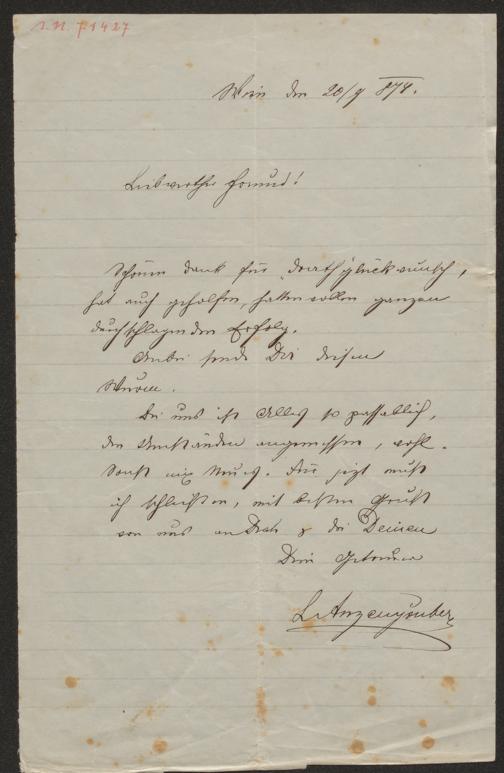 I.N. 71427
Wien den 20/9 874.
Liebwerther Freund!
Schönen Dank für Drathglückwunsch,
hat auch geholfen, hatten vollen ganzen
durchschlagenden Erfolg.
Anbei sende Dir diesen
Wurm.
Bei uns ist Alles so passablich,
den Umständen angemessen, wohl.
Sonst nix Neues. Für jezt muß
ich schließen, mit bestem Gruß
von uns an Dich & die Deinen
Dein Getreuer
L. Anzengruber